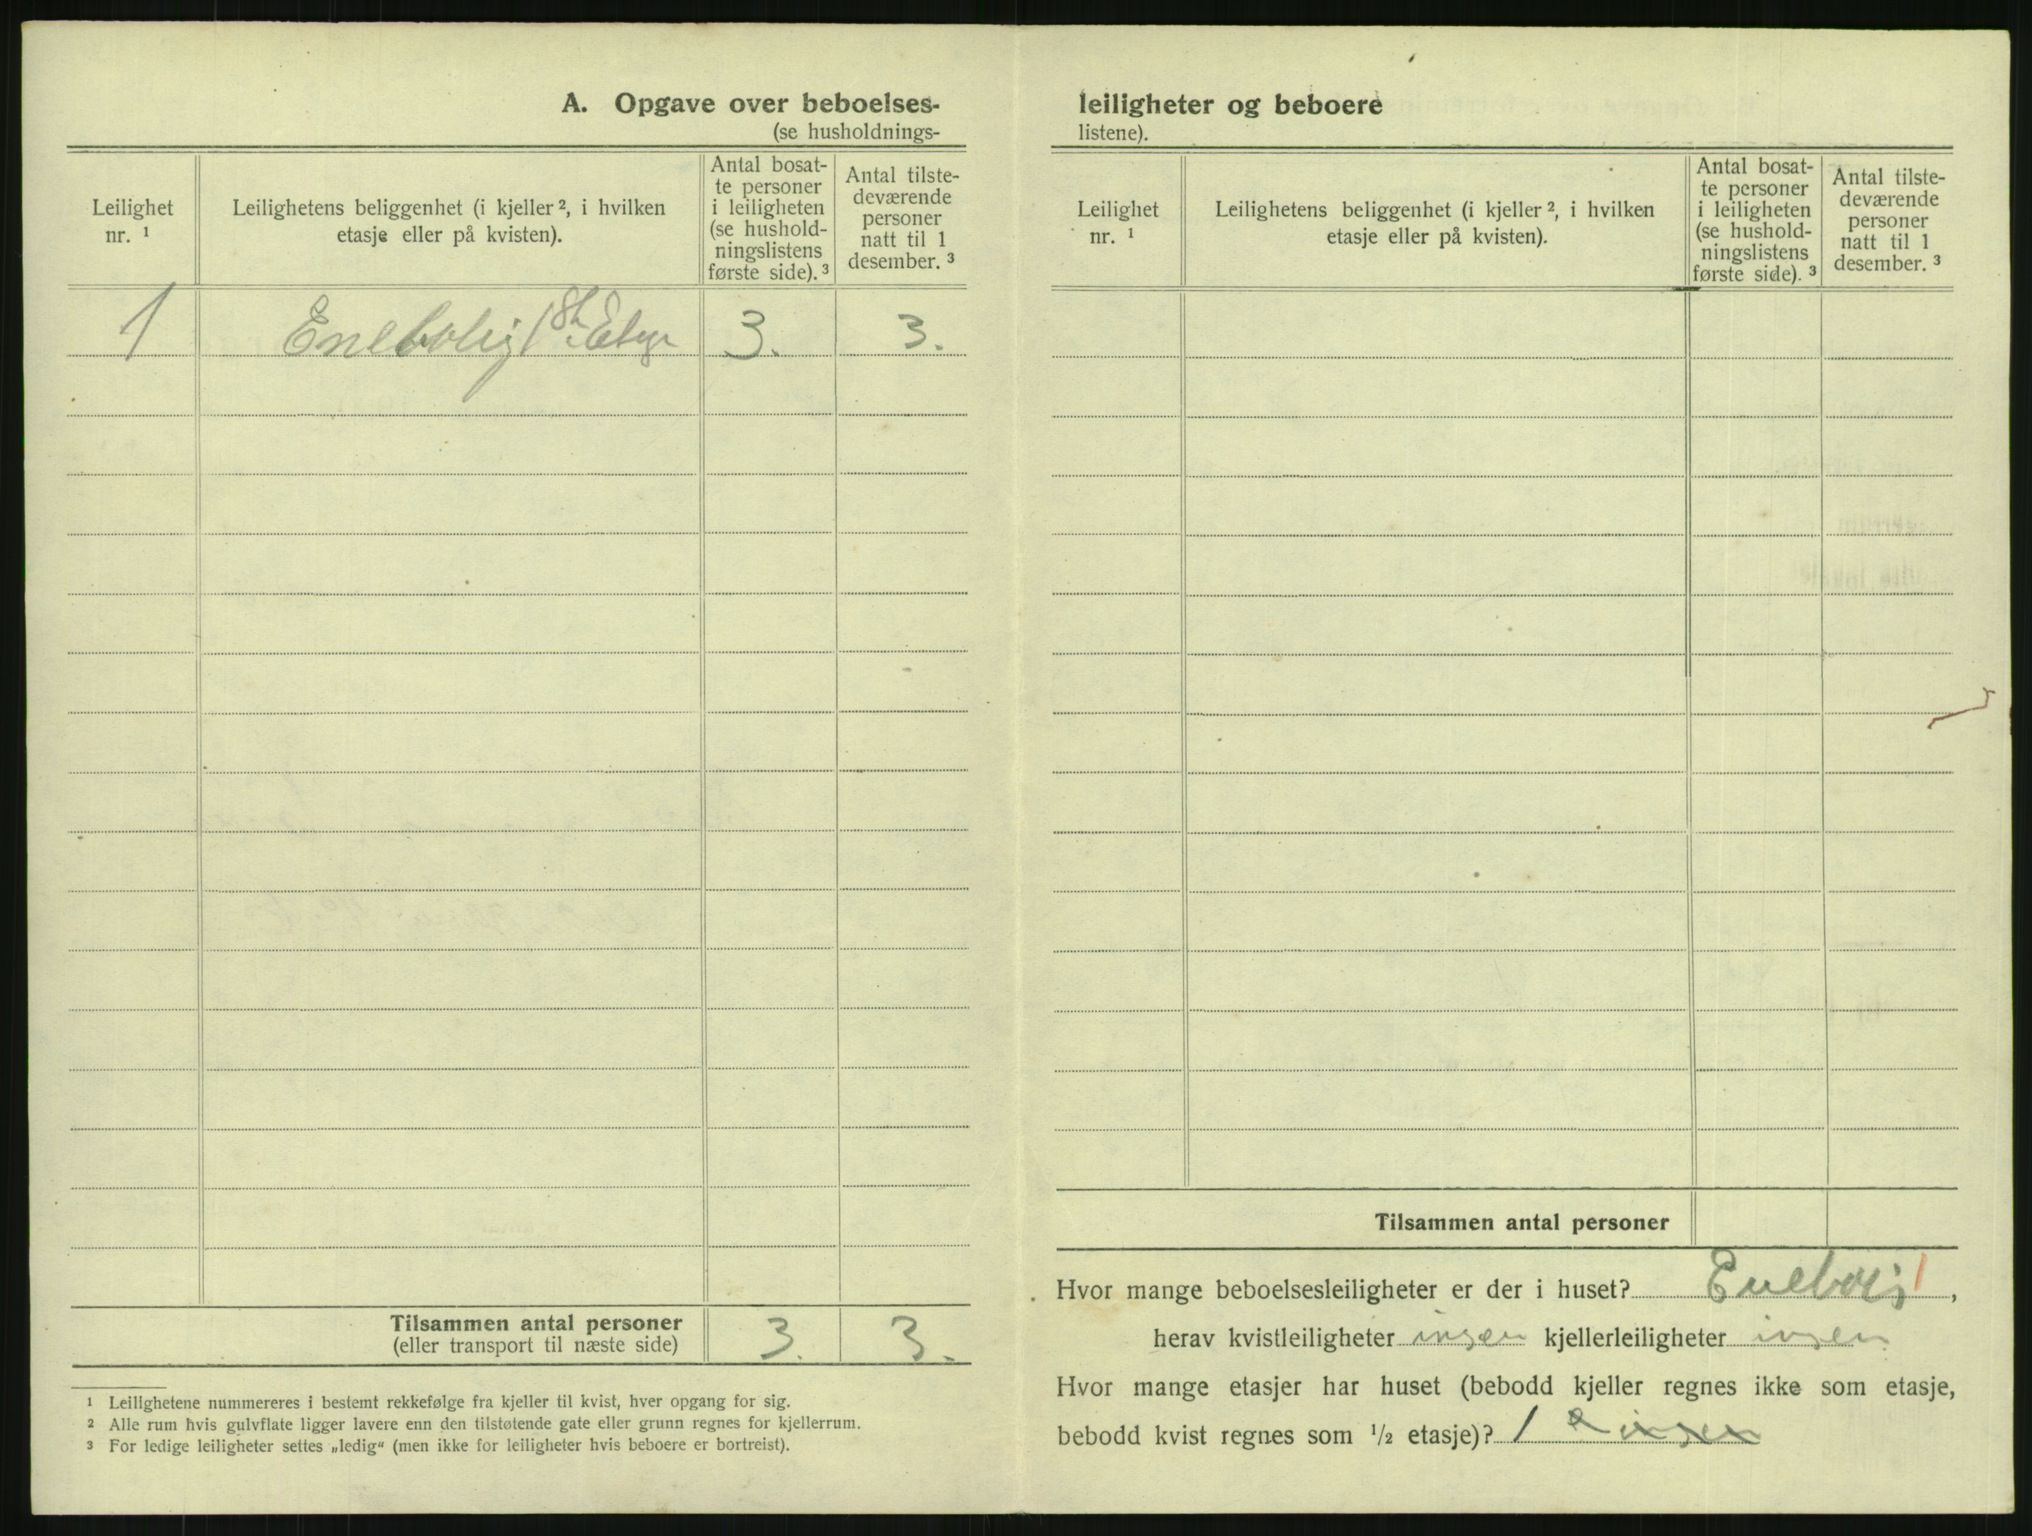 A. Opgave over beboelses-
(se husholdnings-
Leilighet nr. ¹
Leilighetens beliggenhet (i kjeller ², i hvilken
etasje eller på kvisten).
Antal bosat-
te personer
i leiligheten
(se hushold-
ningslistens
første side). ³
Antal tilste-
deværende
personer
natt til 1
desember. ³
1 Enebolig 1 3. 3.
Tilsammen antal personer 3. 3.
(eller transport til næste side)
¹ Leilighetene nummereres i bestemt rekkefølge fra kjeller til kvist, hver opgang for sig.
² Alle rum hvis gulvflate ligger lavere enn den tilstøtende gate eller grunn regnes for kjellerrum.
³ For ledige leiligheter settes „ledig“ (men ikke for leiligheter hvis beboere er bortreist).
leiligheter og beboere
listene).
Leilighet
nr. ¹
Leilighetens beliggenhet (i kjeller ², i hvilken
etasje eller på kvisten).
Antal bosat-
te personer
i leiligheten
(se hushold-
ningslistens
første side). ³
Antal tilste-
deværende
personer
natt til 1
desember. ³
Tilsammen antal personer
Hvor mange beboelsesleiligheter er der i huset? Enebolig 1,
herav kvistleiligheter ingen kjellerleiligheter ingen
Hvor mange etasjer har huset (bebodd kjeller regnes ikke som etasje,
bebodd kvist regnes som ½ etasje)? 1